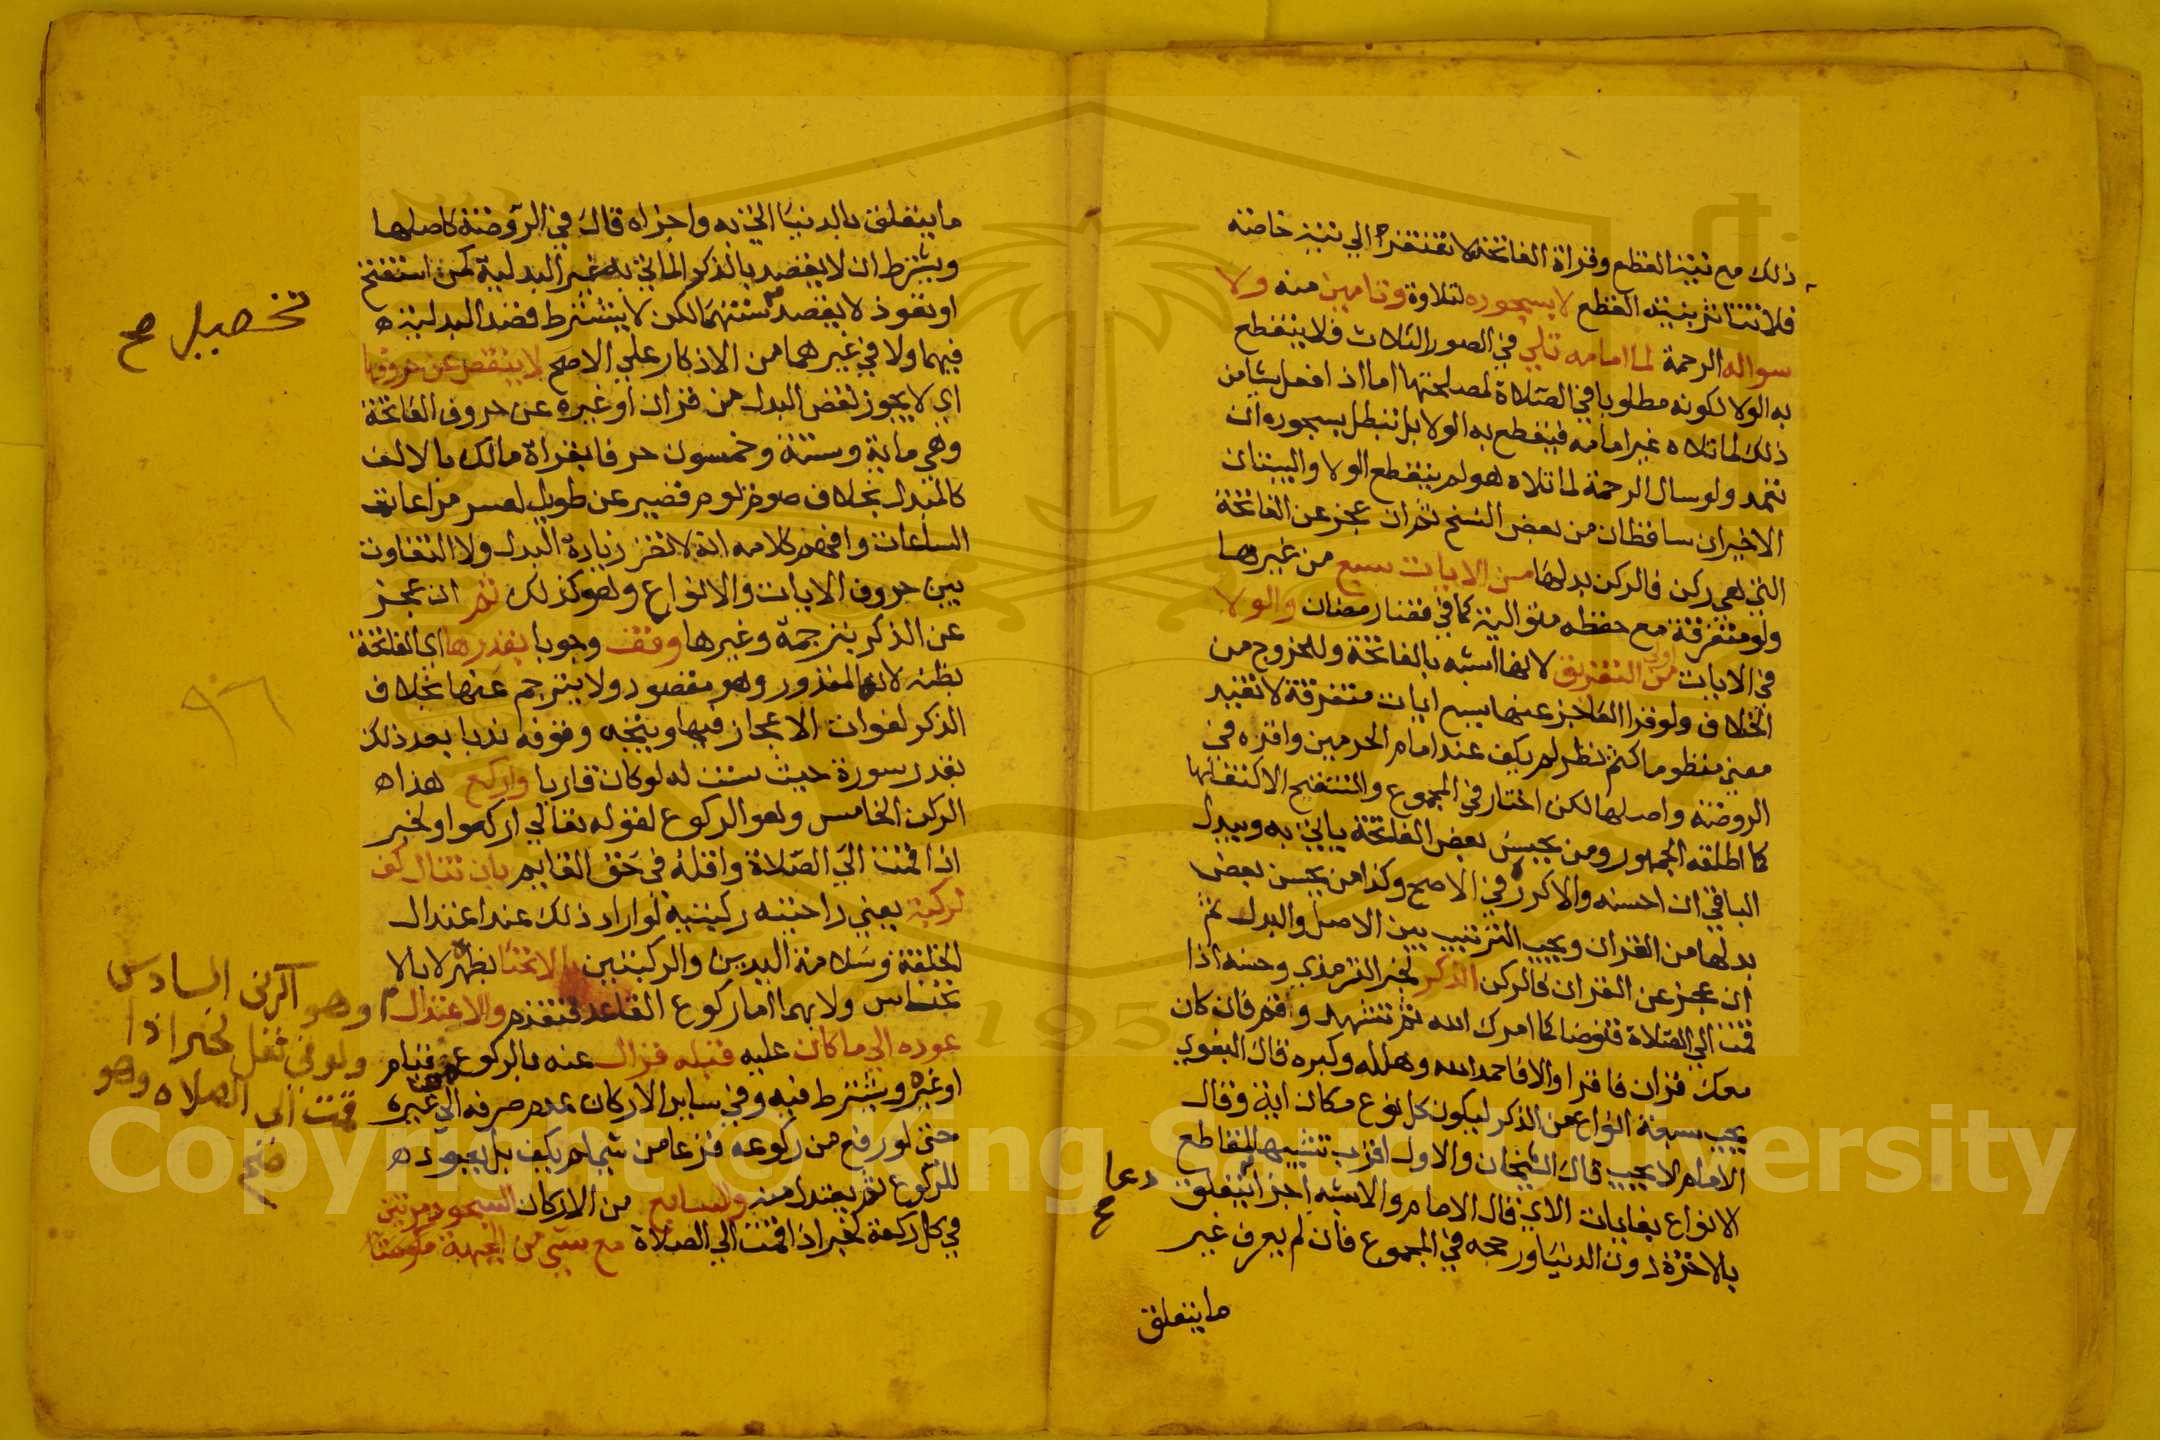 ذلك مع نية القطع وقراة الفاتحة لا تفتقر الي نية خاصة
فلا تتاثر بنية القطع لا بسجوده لتلاوة وتامين منه ولا
سواله الرحمة لما امامه تلي في الصور الثلاث فلا ينقطع
به الولا لكونه مطلوبا في الصلاة لمصلحتها اما اذا فعل شيا من
ذلك لما تلاه غير امامه فينقطع به الولا بل تبطل بسجوده ان
تعمد ولو سال الرحمة لما تلاه هو لم ينقطع الولا والبيتان
الاخيران ساقطان من بعض النسخ ثم ان عجز عن الفاتحة
التي هي ركن فالركن بدلها من الايات سبع من غيرها
ولو متفرقة مع حفظه متوالية كما في قضا رمضان والولا
في الايات اولي من التفريق لانها اشبه بالفاتحة وللخروج من
الخلاف ولو قرا العاجز عنها سبع ايات متفرقة لا تفيد
معني منظوما كثم نظر لم يكف عند امام الحرمين واقره في
الروضة واصلها لكن اختار في المجموع والتنقيح الاكتفا بها
كما اطلقه الجمهور ومن يحسن بعض الفاتحة ياتي به ويبدل
الباقي ان احسنه والا كرره في الاصح وكذا من يحسن بعض
بدلها من القران ويجب الترتيب بين الاصل والبدل ثم
ان عجز عن القران فالركن الذكر لخبر الترمذي وحسنه اذا
قمت الي الصلاة فتوضا كما امرك الله ثم تشهد واقم فان كان
معك قران فاقرا والا فاحمد الله وهلله وكبره قال البغوي
يجب سبعة انواع من الذكر ليكون كل نوع مكان اية وقال
الامام لا يجب قال الشيخان والاول اقرب تشبيها لمقاطع
الانواع بغايات الاي قال الامام والاشبه اجزا يتعلق
دعا صح
بالاخرة دون الدنيا ورجحه في المجموع فان لم يعرف غير
ما يتعلق
ما يتعلق بالدنيا اتي به واجزاه قال في الروضة كاصلها
ويشترط ان لا يقصد بالذكر الماتي به غير البدلية كمن استفتح
او تعوذ لا بقصد سنتهما لكن لا يشترط قصد البدلية
تحصيل صح
فيهما ولا في غيرهما من الاذكار علي الاصح لا ينقص عن حروفها
اي لا يجوز نقص البدل من قران او غيره عن حروف الفاتحة
وهي ماية وستة وخمسون حرفا بقراة مالك بالالف
كالمبدل بخلاف صوم يوم قصير عن طويل لعسر مراعات
الساعات وافهم كلامه انه لا تضر زيادة البدل ولا التفاوت
بين حروف الايات والانواع وهو كذلك ثم ان عجز
عن الذكر بترجمة وغيرها وقف وجوبا بقدرها اي الفاتحة
بظنه لانه المقدور وهو مقصود ولا يترجم عنها بخلاف
٩٦
الذكر لفوات الاعجاز فيها ويتجه وقوفه ندبا بعد ذلك
بقدر سورة حيث سنت له لو كان قاريا واركع هذا
الركن الخامس وهو الركوع لقوله تعالي اركعوا ولخبر
اذا قمت الي الصلاة واقله في حق القايم بان تنال كف
لركبة يعني راحتيه ركبتيه لو اراد ذلك عند اعتدال
الخلقة وسلامة اليدين والركبتين بالانحنا بظهره لا بالا
نخناس ولا بهما اما ركوع القاعد فتقدم والاعتدال
وهو الركن السادس
ولو في نفل لخبر اذا
قمت الي الصلاه وهو
صح
عوده الي ما كان عليه قبله فزال عنه بالركوع من قيام
او غيره ويشترط فيه وفي ساير الاركان عدم صرفه الي غيره
حتي لو رفع من ركوعه فزعا من شي لم يكف بل يعود
للركوع ثم يعتدل منه والسابع من الاركان السجود مرتين
في كل ركعة لخبر اذا قمت الي الصلاة مع شي من الجبهة مكوشفا
Copyright © King Saud University
195